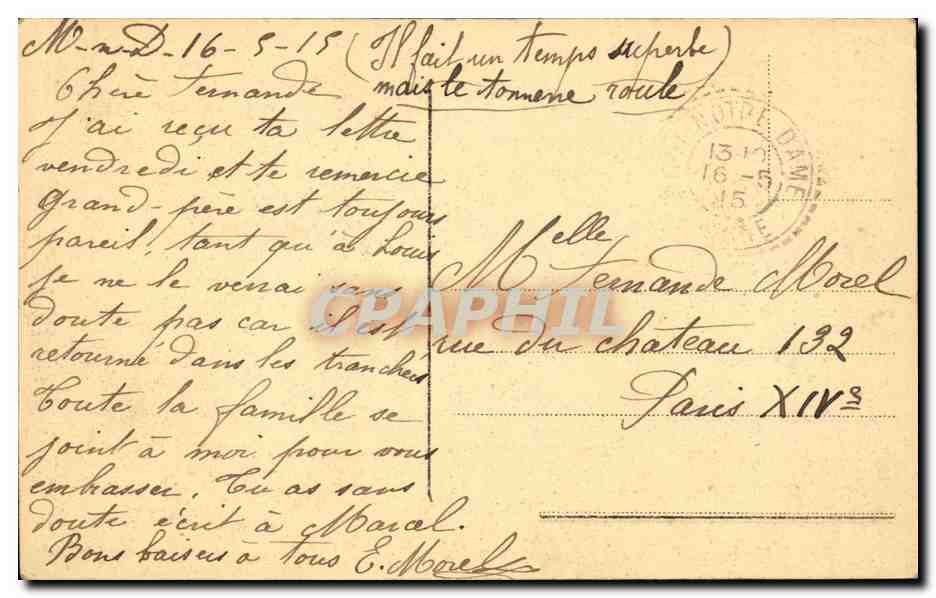 M-n-D-16-5-15 (Il fait un temps superbe
mais le tonnerre roule)
Chère Fernande
J'ai reçu ta lettre
vendredi et te remercie
Grand-père est toujours
pareil, tant qu'à Louis
je ne le verrai sans
doute pas car il est
retourné dans les tranchées
Toute la famille se
joint à moi pour vous
embrasser. Tu as sans
doute écrit à Marcel.
Bons baisers à tous E. Morel
NOTRE DAME
13
16-5
15
Melle Fernande Morel
rue du château 132
Paris XIVe
CPAPHIL